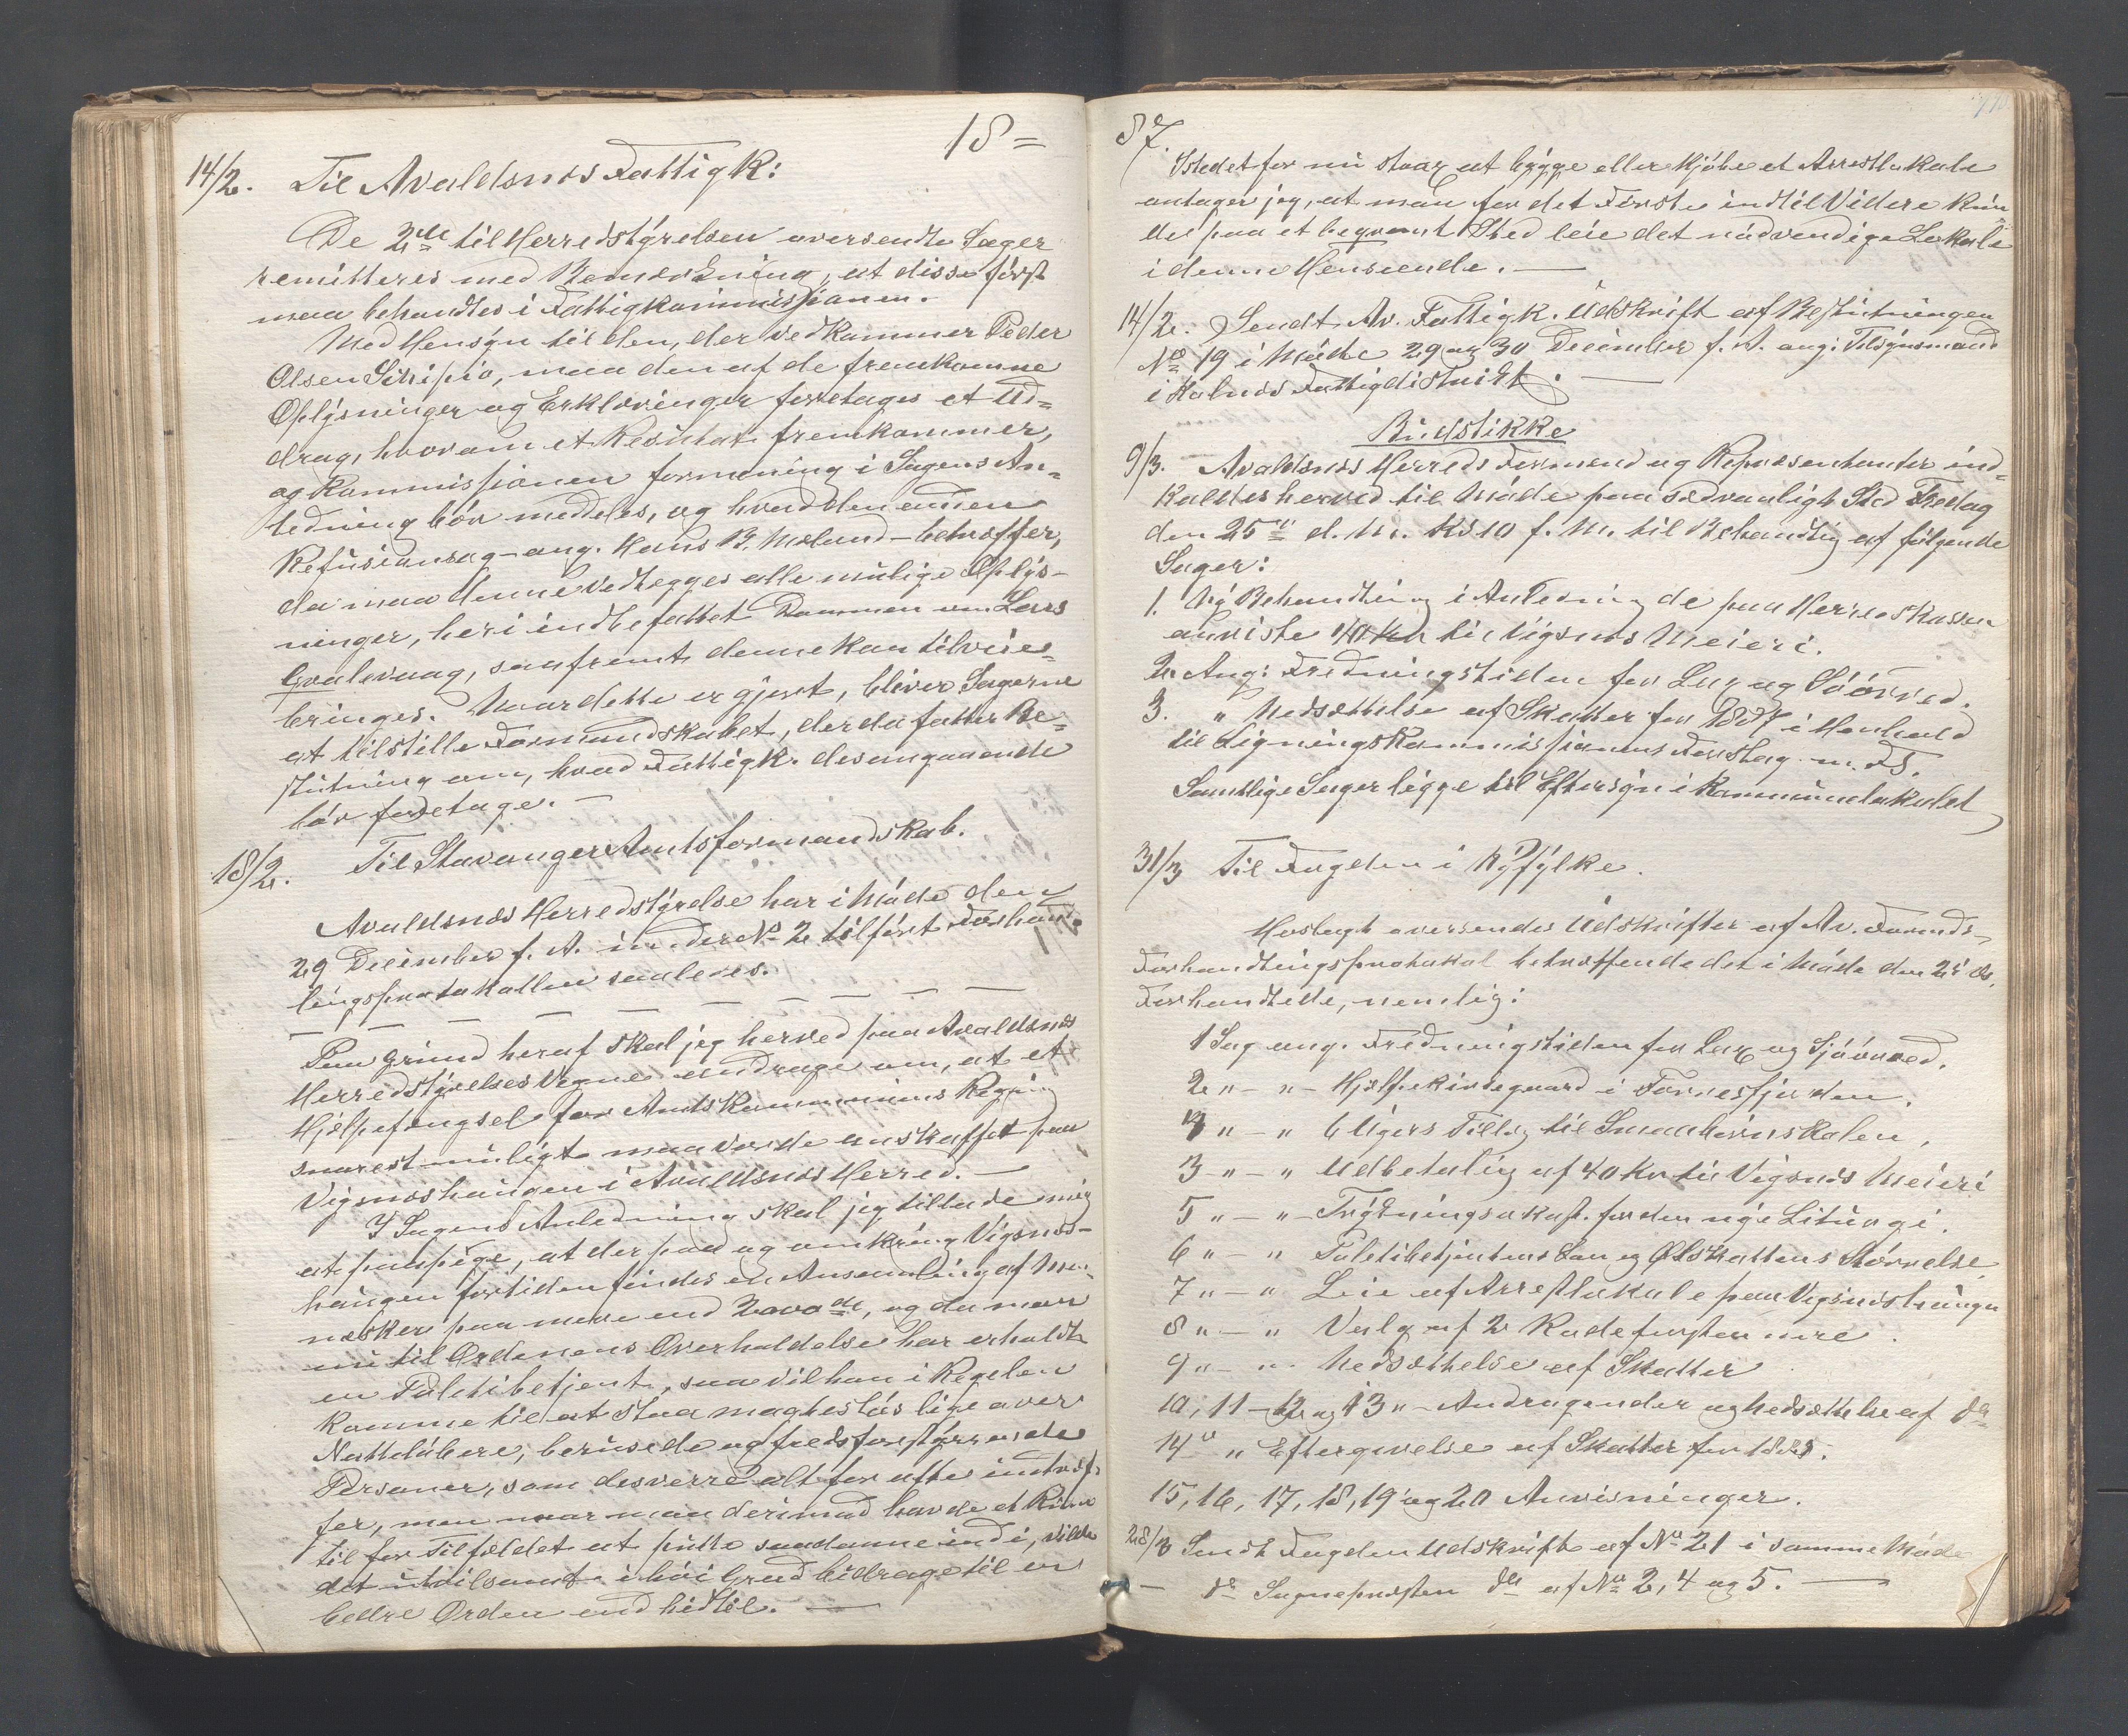 18=
14/2. Til Avaldsnes Fattigk:
De 2de til Herredstyrelsen oversendte Sager
remitteres med Bemærkning, at disse først
maa behandles i Fattigkommissionen.
Med Hensyn til den, der vedkommer Peder
Olsen Scipio, maa den af de fremkomne
Oplysninger og Erklæringer foretages et Ud=
drag, hvorom et Resultat fremkommer,
og Kommissionen formening i Sagens An=
ledning bør meddeles, og hvad den anden
Refusionsag – ang. Hans B. Meland – betræffer,
da maa denne vedlegges alle mulige Oplys-
ninger, heri indbefattet Dommen om Lars
Gvalevaag, saafremt denne kan tilveie=
bringes. Naar dette er gjort, bliver Sagerne
at tilstille Formandskabet, der da fatter Be=
slutning om, hvad Fattigk. desangaaende
bør foretage. —
18/2. Til Stavanger Amtsformandskab.
Avaldsnes Herredstyrelse har i Møde den
29 December f. A. under No 2 tilført Forhand=
lingsprotokollen saaledes.
— — — — — — — —
Paa Grund heraf skal jeg herved paa Avaldsnes
Herredstyrelses Vegne andrage om, at et
Hjelpefængsel for Amtskommunens Regning
snarest muligt maa vorde anskaffet paa
Vigsneshaugen i Avaldsnes Herred. —
I Sagens Anledning skal jeg tillade mig
at paapege, at der paa og omkring Vigsnes-
haugen fortiden findes en Ansamling af Men-
nesker paa mere end 2000de, og da man
nu til Ordenens Overholdelse har erholdt
en Politibetjent, saa vil han i Regelen
komme til at staa magtesløs lige over
Natteløbere, berusede og fredsforstyrrende
Personer, som desverre alt for ofte indtref-
fer, men naar man derimod havde et Rum
til for Tilfældet at putte saadanne ind i, vilde
det utvilsomt i høi Grad bidrage til en
bedre Orden end hidtil. —
87.
Istedet for nu strax at bygge eller kjøbe et Arrestlokale
antager jeg, at man for det Første indtil Videre kun
de paa et beqvemt Sted leie det nødvendige Lokale
i denne Henseende. —
14/2. Sendt Av. Fattigk. Udskrift af Beslutningen
No 19 i Møde 29 og 30 December f. A. ang: Tilsynsmand
i Halnes Fattigdistrikt. —
Budstikke
9/3. Avaldsnes Herreds Formænd og Repræsentanter ind=
kaldes herved til Møde paa sædvanligt Sted Fredag
den 25de d. M. Kl 10 f. M. til Behandling af følgende
Sager:
1. Ny Behandling i Anledning de paa Herredskassen
anviste 40 Kr til Vigsnes Meieri.
2. Ang: Fredningstiden for Lax og Søørred.
3. " Nedsættelse af Skatter for 1887 i Henhold
til Ligningskommissionens Forslag m. F.
Samtlige Sager ligge til Eftersyn i Kommunelokalet
31/3 Til Fogden i Ryfylke.
Hoslagt oversendes Udskrifter af Av. Formds-
Forhandlingsprotokol betræffende det i Møde den 25 ds.
Forhandlede, nemlig:
1 Sag ang. Fredningstiden for Lax og Sjøørred.
2 " – " – Hjelpekirkegaard i Førresfjorden.
4 " – " 6 Ugers Tillæg til Smaabørnskolen.
3 " – " Udbetaling af 40 Kr til Vigsnes Meieri
5 " – " – Trykningsokst. for den nye Liturgi.
6 " – " Politibetjentens Løn og Ølskattens Størrelse.
7 " – " Leie af Arrestlokale paa Vigsneshaugen
8 " – " Valg af 2 Rodeforstandere.
9 " – " Nedsættelse af Skatter
10, 11 – 12 og 13 " – Andragender og Nedsættelse af do
14 " " Eftergivelse af Skatter for 1885.
15, 16, 17, 18, 19 og 20 Anvisninger.
28/3 Sendt Fogden Udskrift af No 21 i samme Møde
— do Sognepresten do af No 2, 4 og 5. —